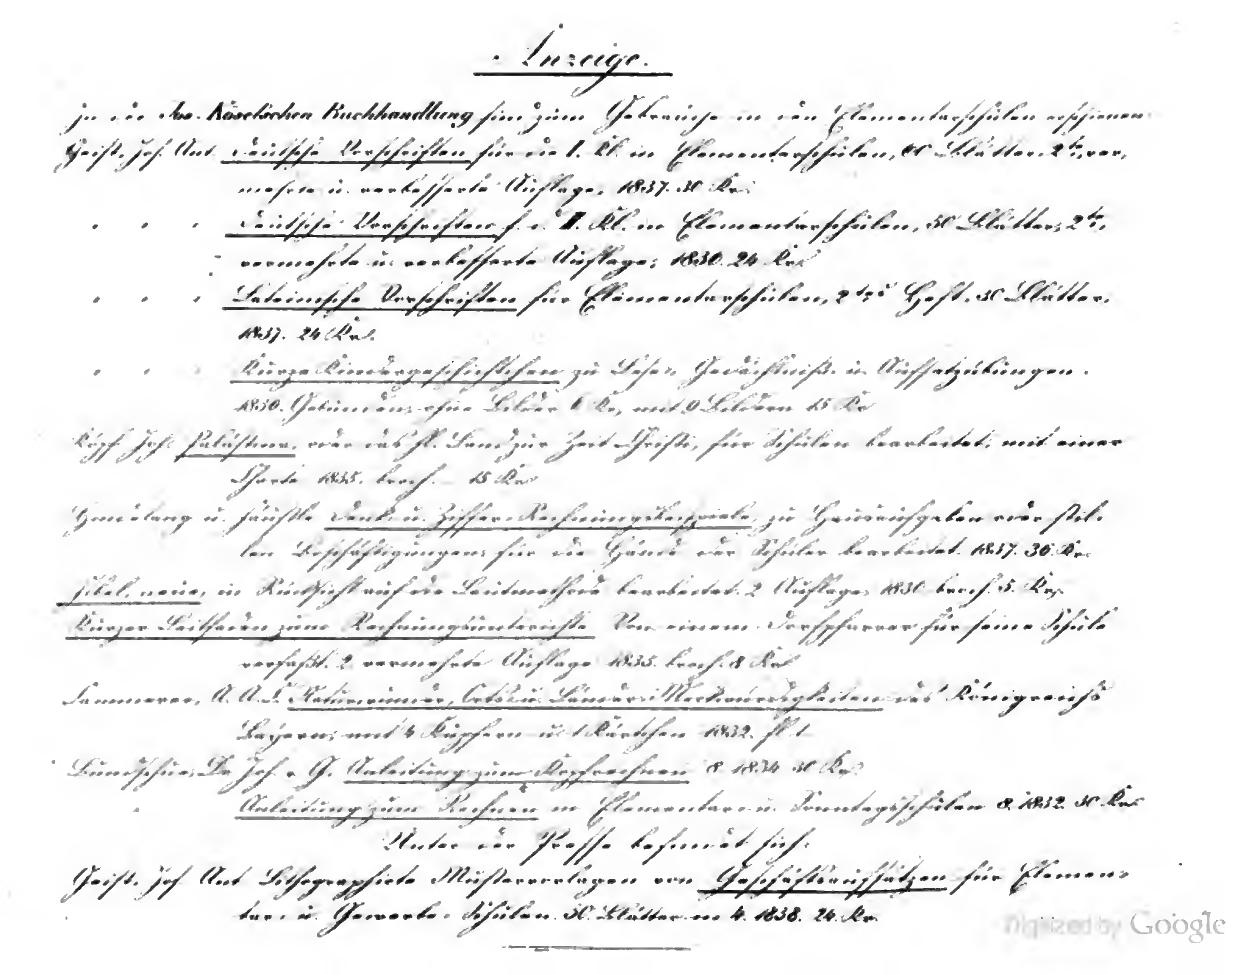 Anzeige.
In der Jos. Köselschen Buchhandlung sind zum Gebrauche in den Elementarschulen erschienen:
Geist, Jos. Ant. Deutsche Vorschriften für die I. Kl. in Elementarschulen, Blätter. 2te, ver,
mehrte u. verbesserte Auflage, 1837. 30 Kr.
" " " Deutsche Vorschriften f. d. II. Kl. in Elementarschulen, 30 Blätter, 2te,
vermehrte u. verbesserte Auflage, 24 Kr.
" " " Lateinische Vorschriften für Elementarschulen, 2tes Heft. 30 Blätter.
1837. 24 Kr.
" " " Kurze Kindergeschichtchen zu Lese, Gedächtniß u. Aufsatzübungen.
Gebunden, ohne Bilder 6 Kr, mit 9 Bildern 15 Kr
Jos. Palästina, oder das hl. Land zur Zeit Christi, für Schulen bearbeitet, mit einer
Charte 1835. broch. 15 Kr.
u. Denk- u. Ziffer-Rechnungsbeispiele, zu Hausaufgaben oder stil-
len Beschäftigungen, für die Hände der Schüler bearbeitet. 1837. 36 Kr.
Fibel, neue, in Rücksicht auf die Lautmethode bearbeitet. 2 Auflage, broch. 5. Kr.
Kurzer Leitfaden zum Rechnungsunterricht. Von einem Dorfpfarrer für seine Schule
verfaßt. 2. vermehrte Auflage 1835. broch. 8 Kr
Sammerer, Naturwunder, Orts- u. Länder-Merkwürdigkeiten des Königreichs
Bayern, mit 4 Kupfern u. 1 Kärtchen 1832. fl. 1.
Bundschue, Dr Joh. v. G. Anleitung zum Kopfrechnen 8. 1834 30 Kr.
" Anleitung zum Rechnen in Elementar- u. Sonntagsschulen 8. 1832. 30 Kr.
Unter der Presse befindet sich:
Geist, Jos. Ant. Lithographirte Mustervorlagen von Geschäftsaufsätzen für Elemen-
tar- u. Gewerbs-Schulen. 30 Blätter in 4. 1838. 24 Kr.
Digitized by Google